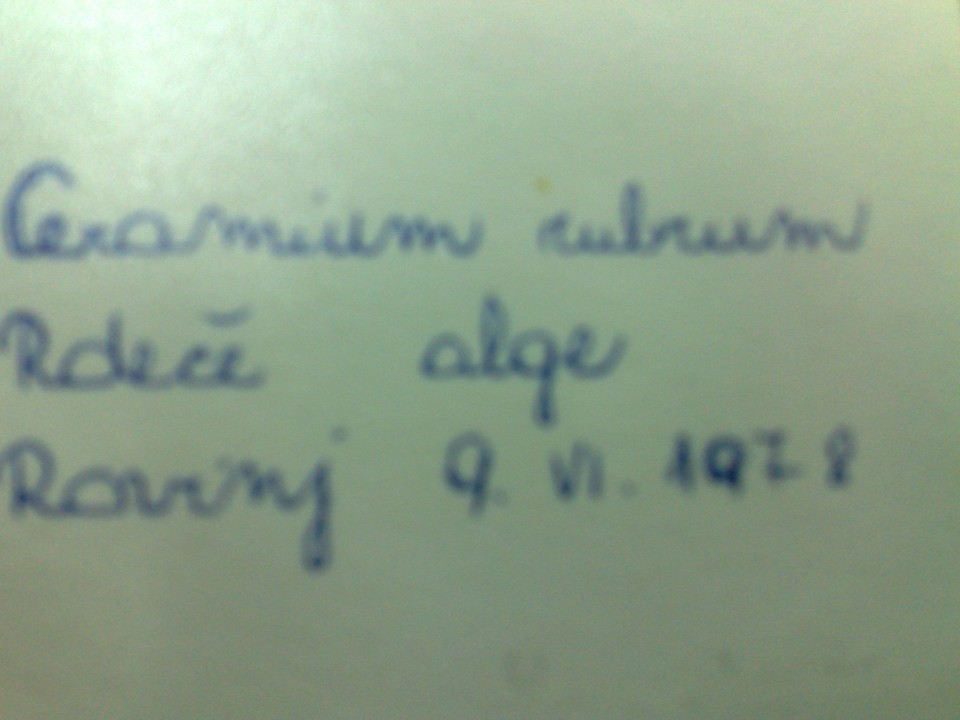 Ceramium rubrum
Rdeče alge
Rovinj 9. VI. 1978